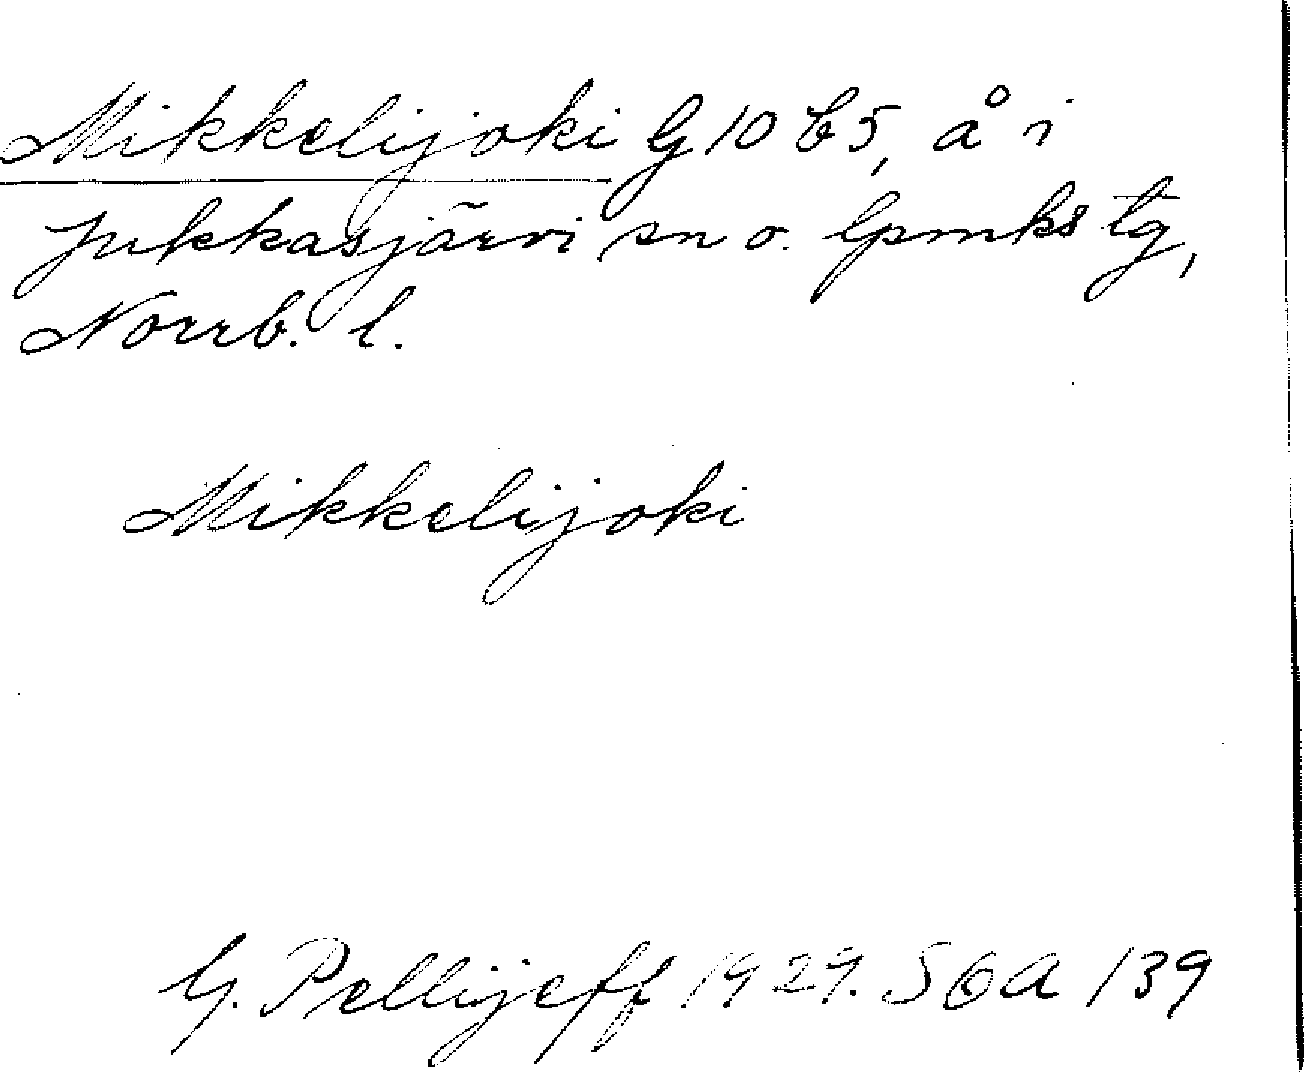 Mikkelijoki G 10 b5, å i
Jukkasjärvi sn o. lpmks tg,
Norrb. l.
Mikkelijoki
G. Pellijeff 1929. SOA 139